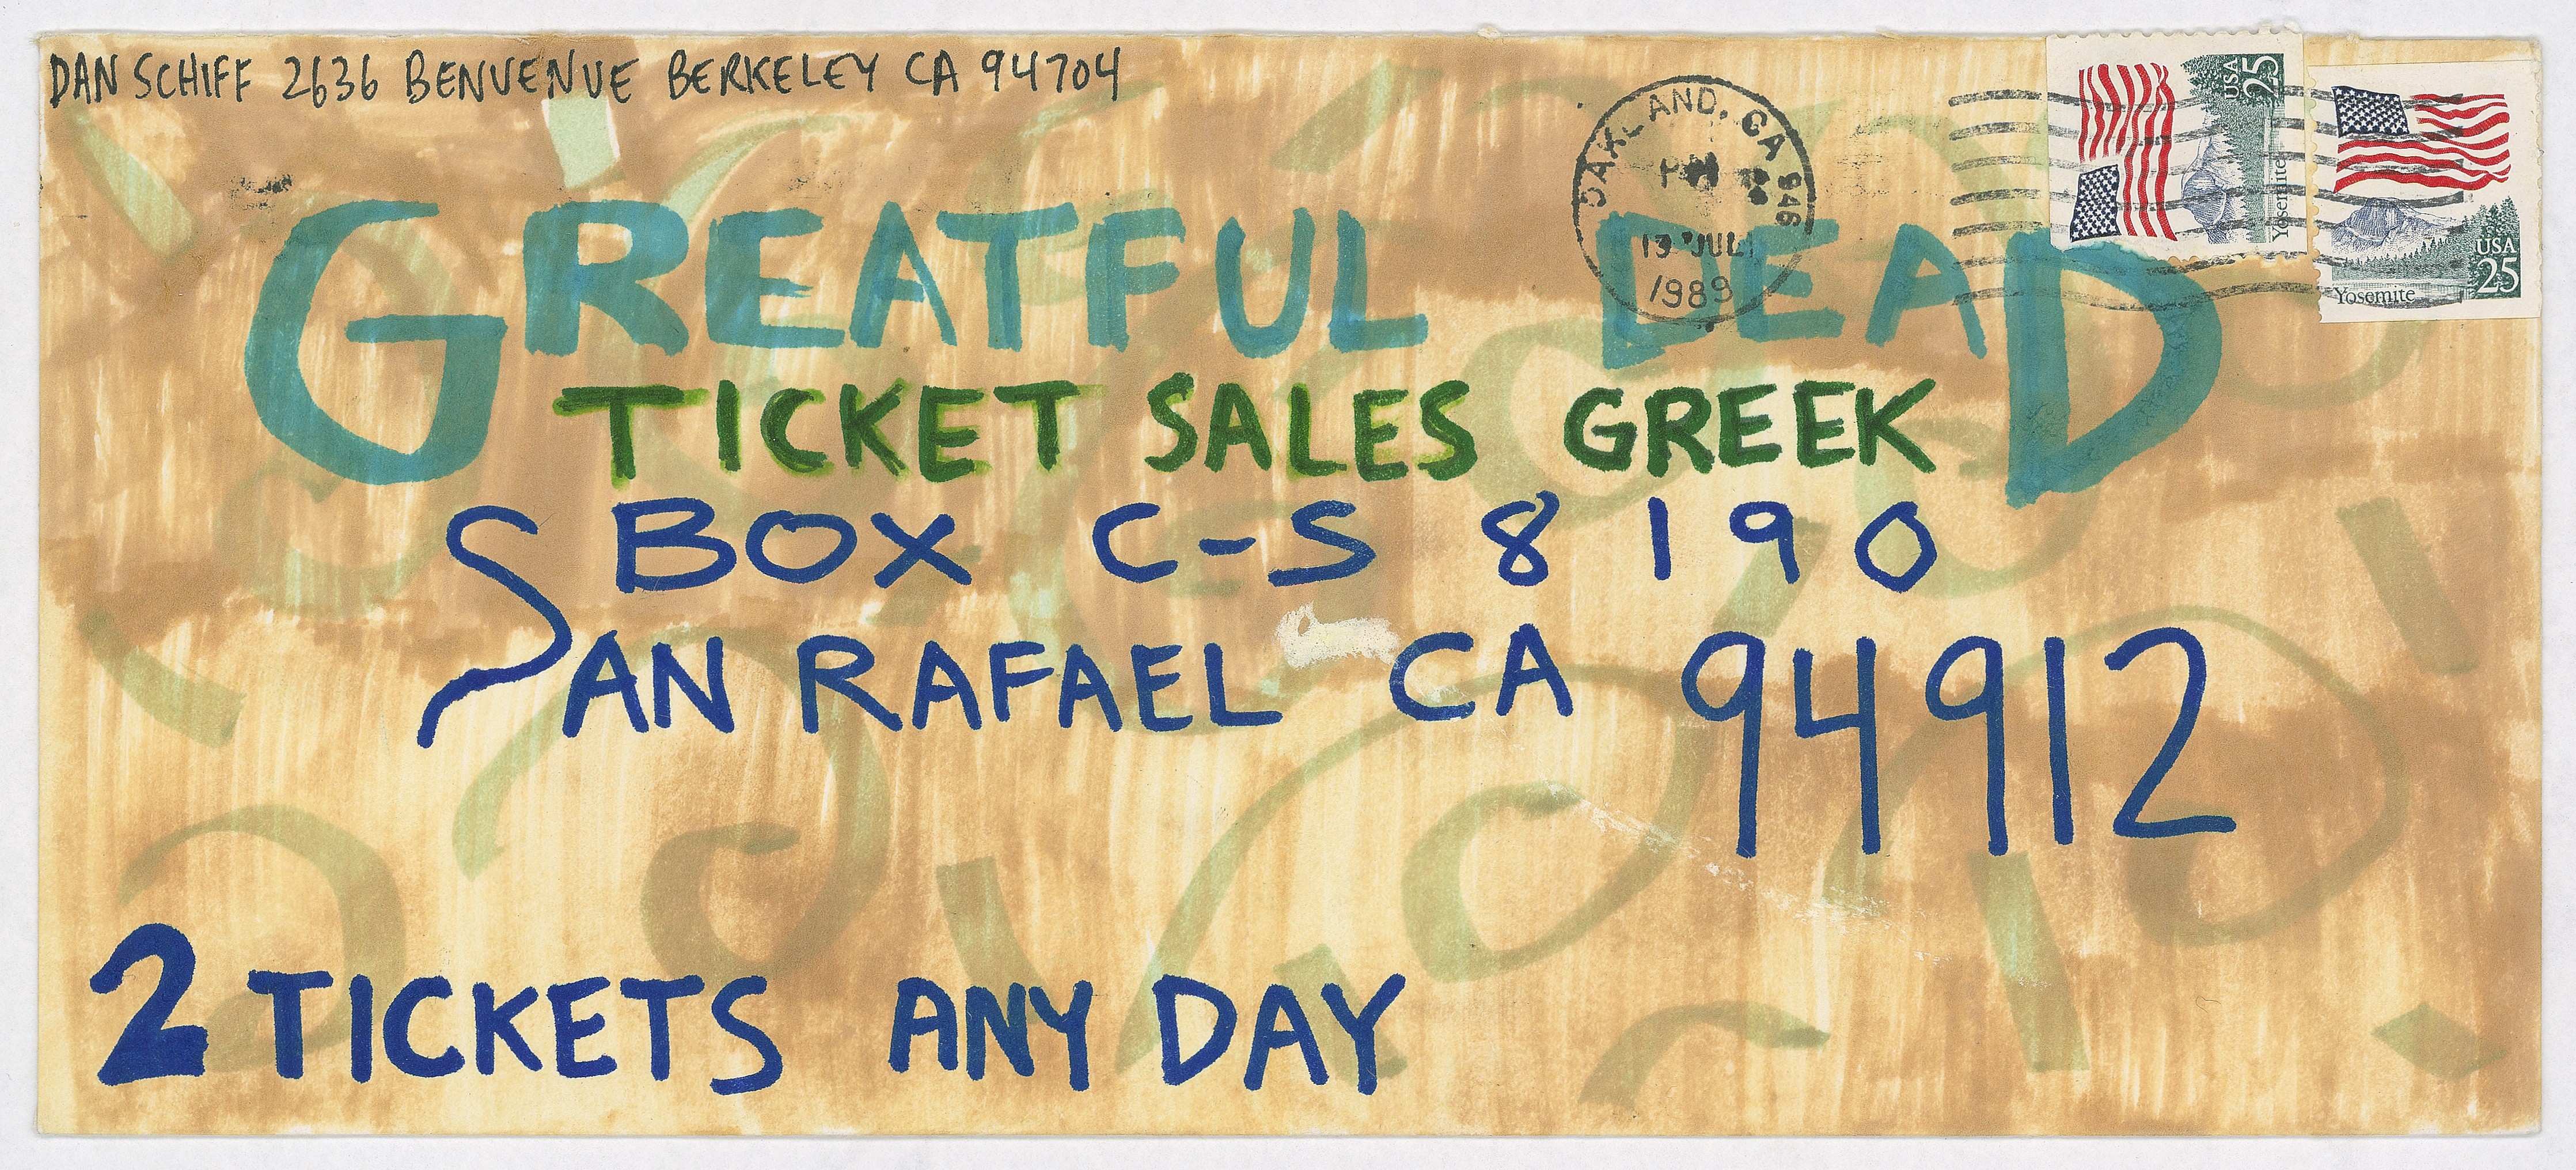 DAN SCHIFF 2636 BENVENUE BERKELEY CA 94704
OAKLAND, CA 946
PM
13 JUL
1989
USA 25
Yosemite
USA
25
Yosemite
GREATFUL DEAD
TICKET SALES GREEK
BOX C-S 8190
SAN RAFAEL CA 94912
2 TICKETS ANY DAY